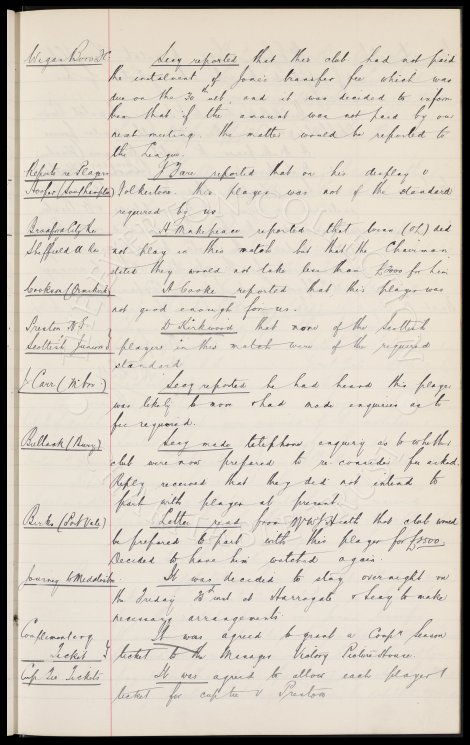 Wigan Boro' FC Secy reported that this club had not paid
the instalment of Jones transfer fee which was
due on the 20th ult, and it was decided to inform
them that if the amount was not paid by our
next meeting the matter would be reported to
the League.
Reports re Players J Fare reported that on his display v
Hooper (Southampton) Folkestone this player was not of the standard
required by us
Bradford City Res H Makepeace reported that (OL) did
Sheffield U Res not play in this match but that the Chairman
stated they would not take less than £3000 for him
Cookson (Ormskirk) A Cooke reported that this player was
not good enough for us.
Preston N.E. D Kirkwood that none of the Scottish
Scottish Juniors players in this match were of the required
standard
J Carr (M'bro') Secy reported he had heard this player
was likely to move & had made enquiries as to
fee required.
Bullock (Bury) Secy made telephone enquiry as to whether
club were now prepared to re-consider fee asked.
Reply received that they did not intend to
part with player at present.
(Port Vale) Letter read from Heath that club would
be prepared to part with this player for £2500
Decided to have him watched again.
Journey to Middlesbro It was decided to stay over-night on
the Friday at Harrogate & Secy to make
necessary arrangements.
Complementary It was agreed to grant a Compy Season
Ticket ticket to the Manager Victory Picture House.
Cup Tie Tickets It was agreed to allow each player 1
ticket for cup tie v Preston